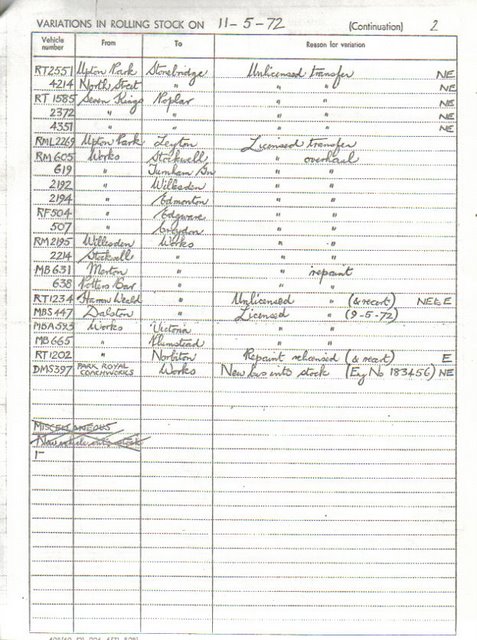 VARIATIONS IN ROLLING STOCK ON 11-5-72 (Continuation) 2
Vehicle number From To Reason for variation
RT2551 Upton Park Stonebridge Unlicensed transfer NE
4214 North Street " " " NE
RT 1585 Seven Kings Poplar " " NE
2372 " " " " NE
4351 " " " " NE
RML2269 Upton Park Leyton Licensed transfer
RM 605 Works Stockwell " overhaul
619 " Turnham Gn " "
2192 " Willesden " "
2194 " Edmonton " "
RF504 " Edgware " "
507 " Croydon " "
RM2195 Willesden Works " "
2214 Stockwell " " "
MB631 Merton " " repaint
638 Potters Bar " " "
RT1234 Harrow Weald " Unlicensed " (& recert) NE & E
MBS447 Dalston " Licensed " (9-5-72)
MBA593 Works Victoria " "
MB665 " Plumstead " "
RT1202 " Norbiton Repaint relicensed (& recert) E
DMS397 PARK ROYAL COACHWORKS Works New bus into stock (Eng No 183456) NE
MISCELLANEOUS
New vehicle into stock
1-